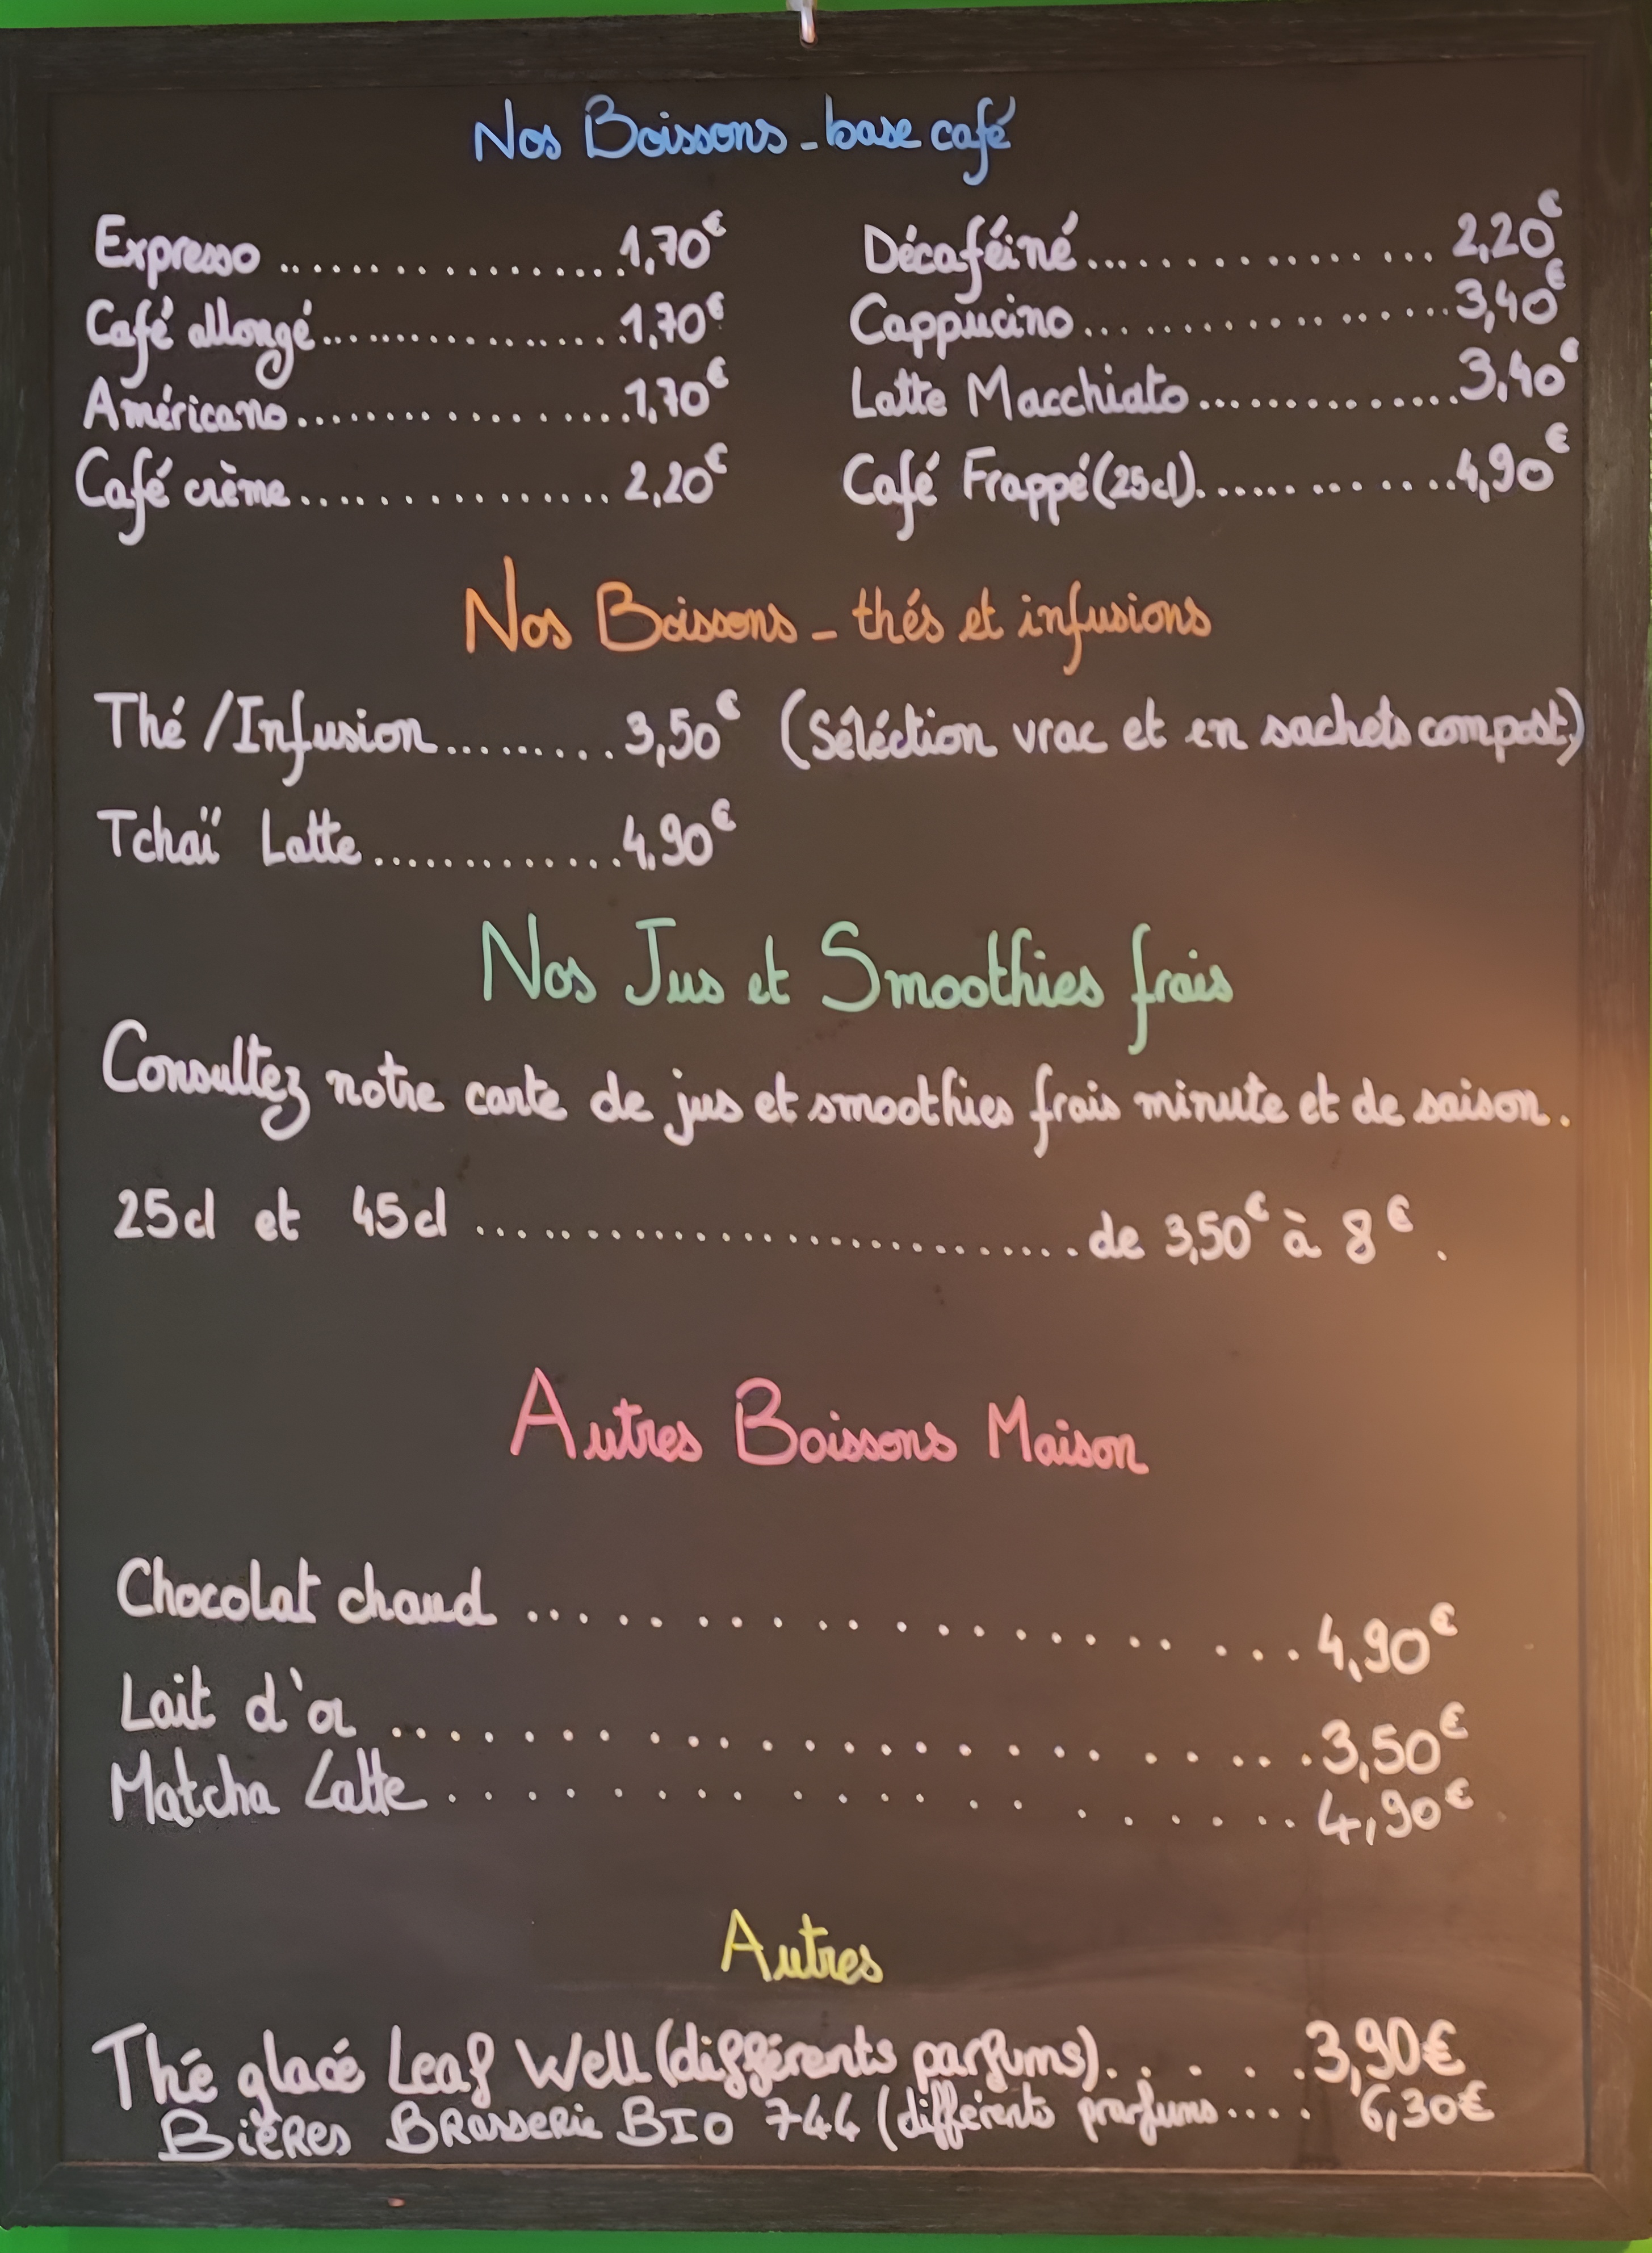 Nos Boissons - base café
Expresso ..................1,70€
Café allongé..................1,70€
Américano..................1,70€
Café crème................2,20€
Décaféiné................2,20€
Cappucino..................3,40€
Latte Macchiato..............3,40€
Café Frappé(25cl)..............4,90€
Nos Boissons - thés et infusions
Thé /Infusion.........3,50€ (Séléction vrac et en sachets compost.)
Tchaï Latte.............4,90€
Nos Jus et Smoothies frais
Consultez notre carte de jus et smoothies frais minute et de saison.
25cl et 45cl ..............................de 3,50€ à 8€.
Autres Boissons Maison
Chocolat chaud ....................4,90€
Lait d'or ........................3,50€
Matcha Latte....................4,90€
Autres
Thé glacé Leaf Well (différents parfums)......3,90€
Bières Brasserie BIO 744 (différents prarfums.... 6,30€